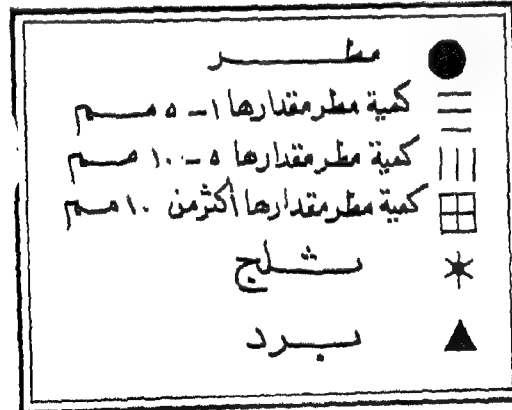 مطر
كمية مطر مقدارها ١ - ٥ مم
كمية مطر مقدارها ٥ - ١٠٠ مم
كمية مطر مقدارها أكثر من ١٠ مم
ثلج
برد